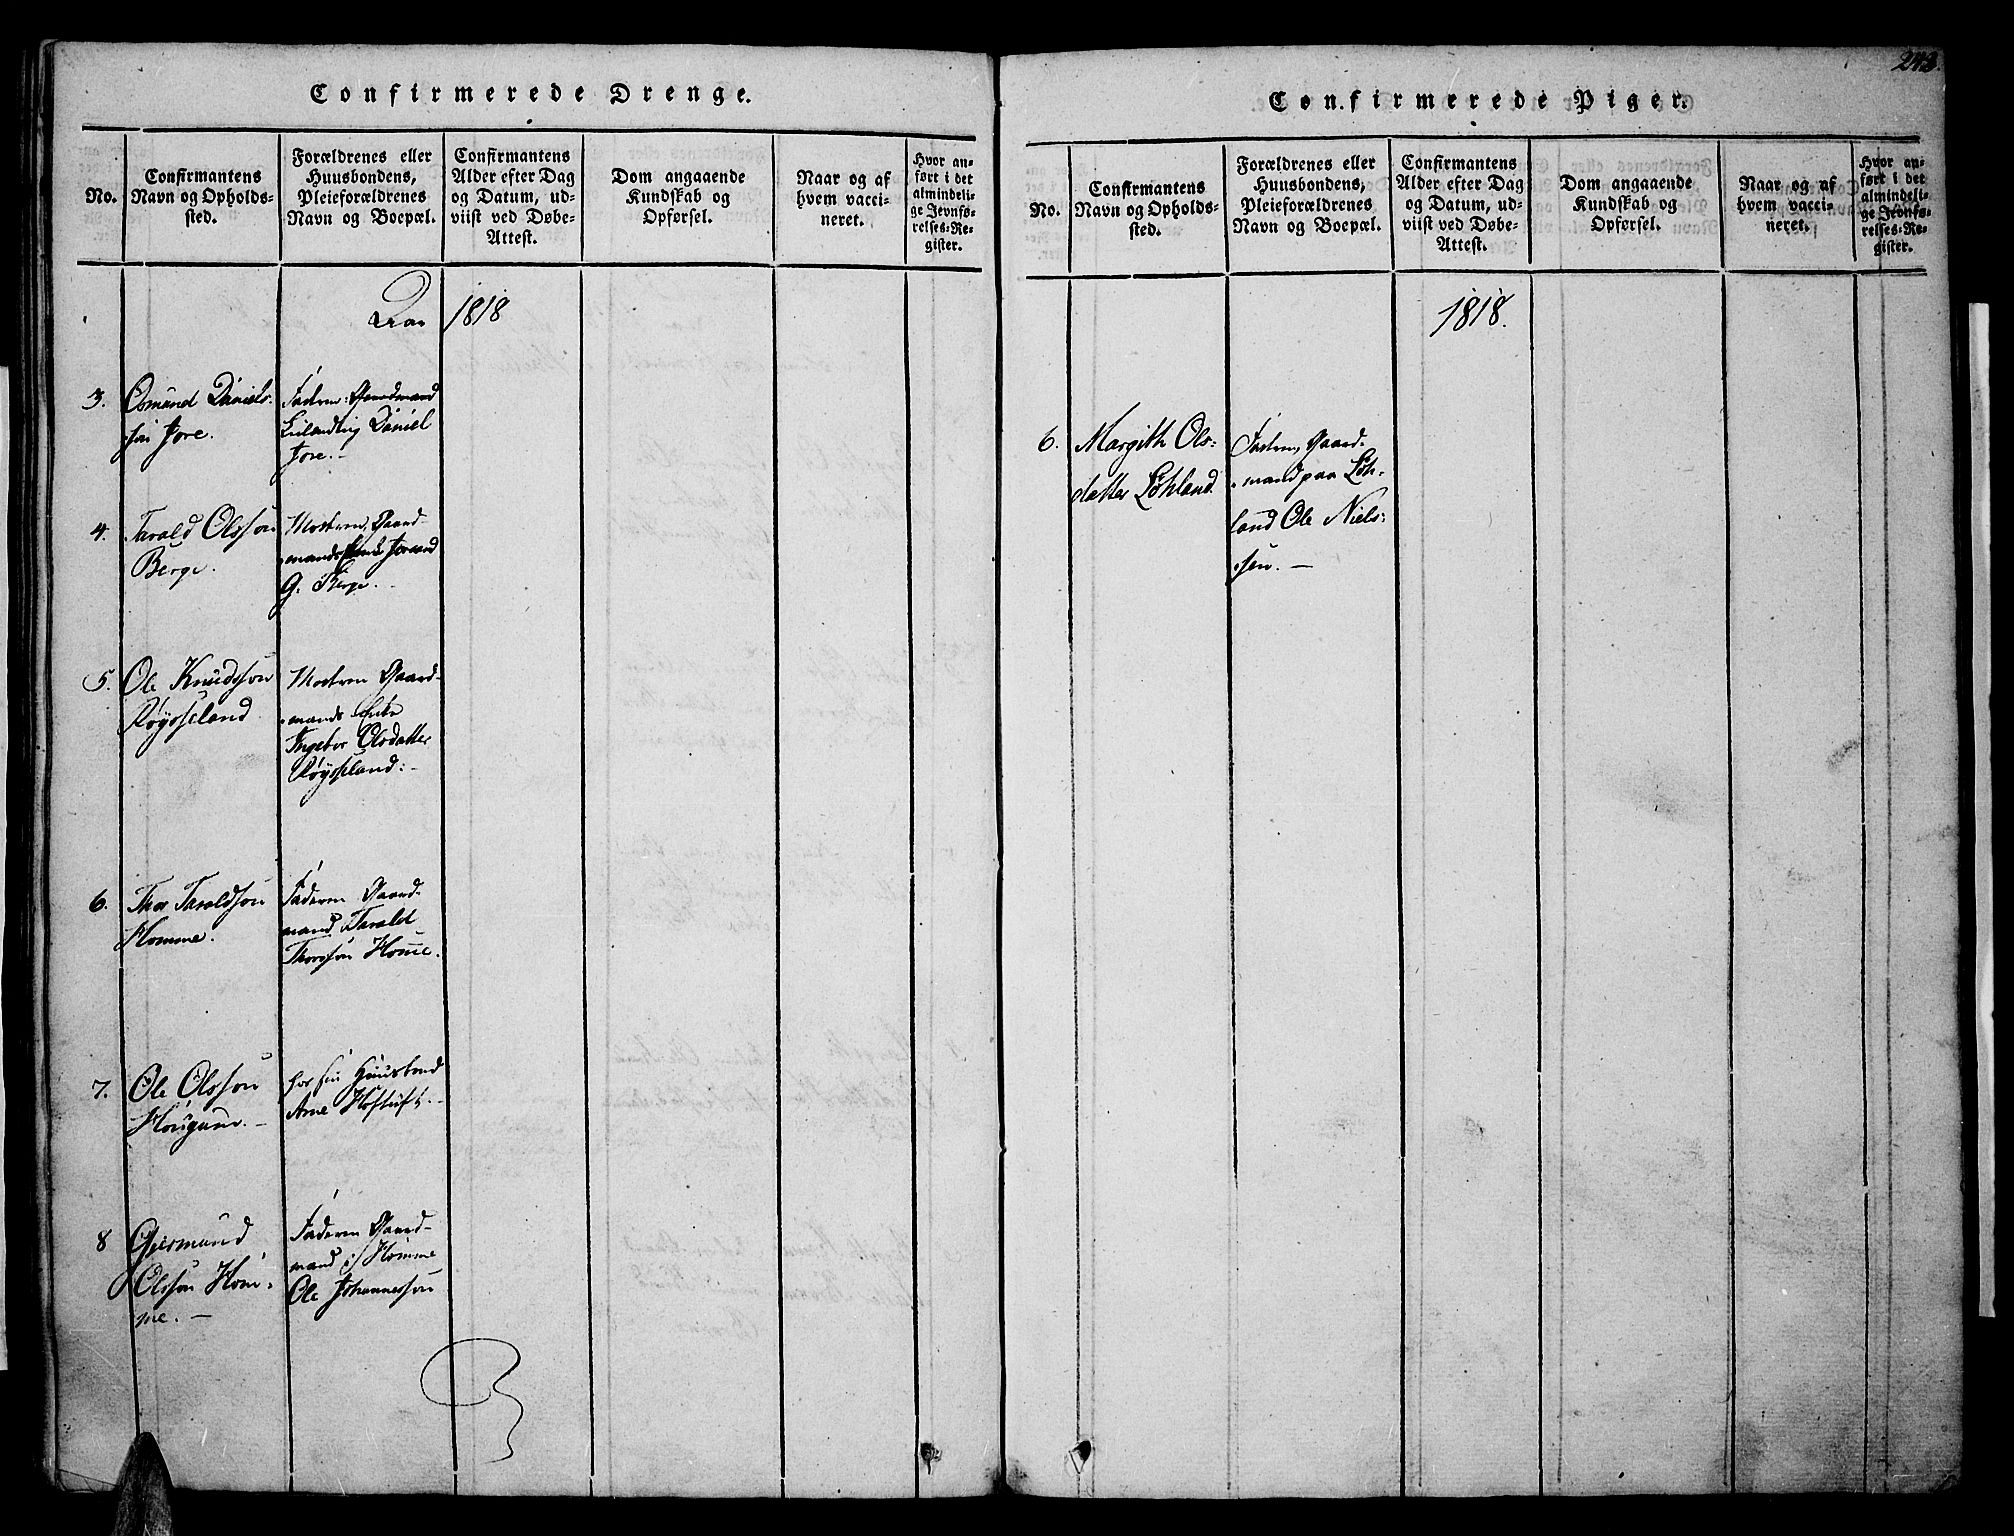 Confirmerede Drenge.
No.
Confirmantens
Navn og Opholds-
sted.
Forældrenes eller
Huusbondens,
Pleieforældrenes
Navn og Boepæl.
Confirmantens
Alder efter Dag
og Datum, ud-
viist ved Døbe-
Attest.
Dom angaaende
Kundskab og
Opførsel.
Naar og af
hvem vacci-
neret.
Hvor an-
ført i det
almindeli-
ge Jevnfø-
relses-Re-
gister.
Aar 1818
3.
Osmund Daniels-
søn Jore.
Faderen: Gaardmand
Leilænding Daniel
Jore. -
4.
Tarald Olsson
Berge.
Moderen, Gaard-
mands Enke Jorand
G. Berge. -
5.
Ole Knudsson
Røysseland
Moderen Gaard-
mands Enke
Ingebor Olsdatter
Røysseland. -
6.
Thor Taraldson
Homme.
Faderen Gaard-
mand Tarald
Thorsson Homme.
7.
Ole Olsson
Hougum. -
hos sin Huusbond
Arne Hoftuft. -
8
Geirmund
Olsson Hom-
me. -
Faderen Gaard-
mand p/ Homme
Ole Johannesson
243.
Confirmerede Piger.
No.
Confirmantens
Navn og Opholds-
sted.
Forældrenes eller
Huusbondens,
Pleieforældrenes
Navn og Boepæl.
Confirmantens
Alder efter Dag
og Datum, ud-
viist ved Døbe-
Attest.
Dom angaaende
Kundskab og
Opførsel.
Naar og af
hvem vacci-
neret.
Hvor an-
ført i det
almindeli-
ge Jevnfø-
relses-Re-
gister.
1818.
6.
Margith Ols-
datter Løhland
Faderen, Gaard-
mand paa Løh-
land Ole Niels-
sen. -